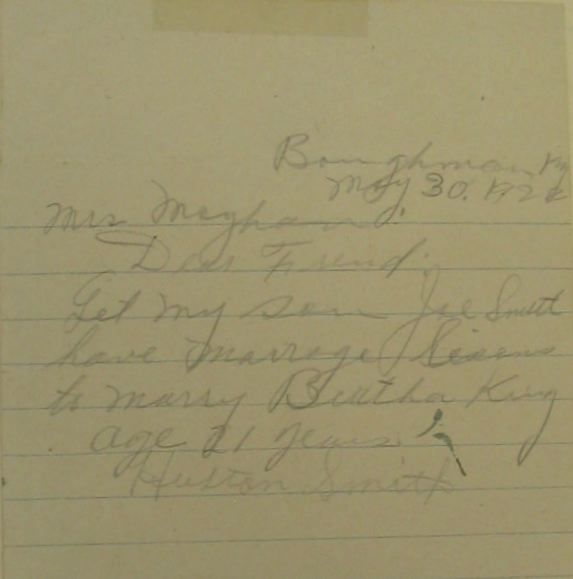 Boughman Ky
May 30. 192
Mrs Meghan.
Dear Friend.
Let my son Joe Smith
have marrage lisens
to marry Beatha King
age 21 years
Huston Smith